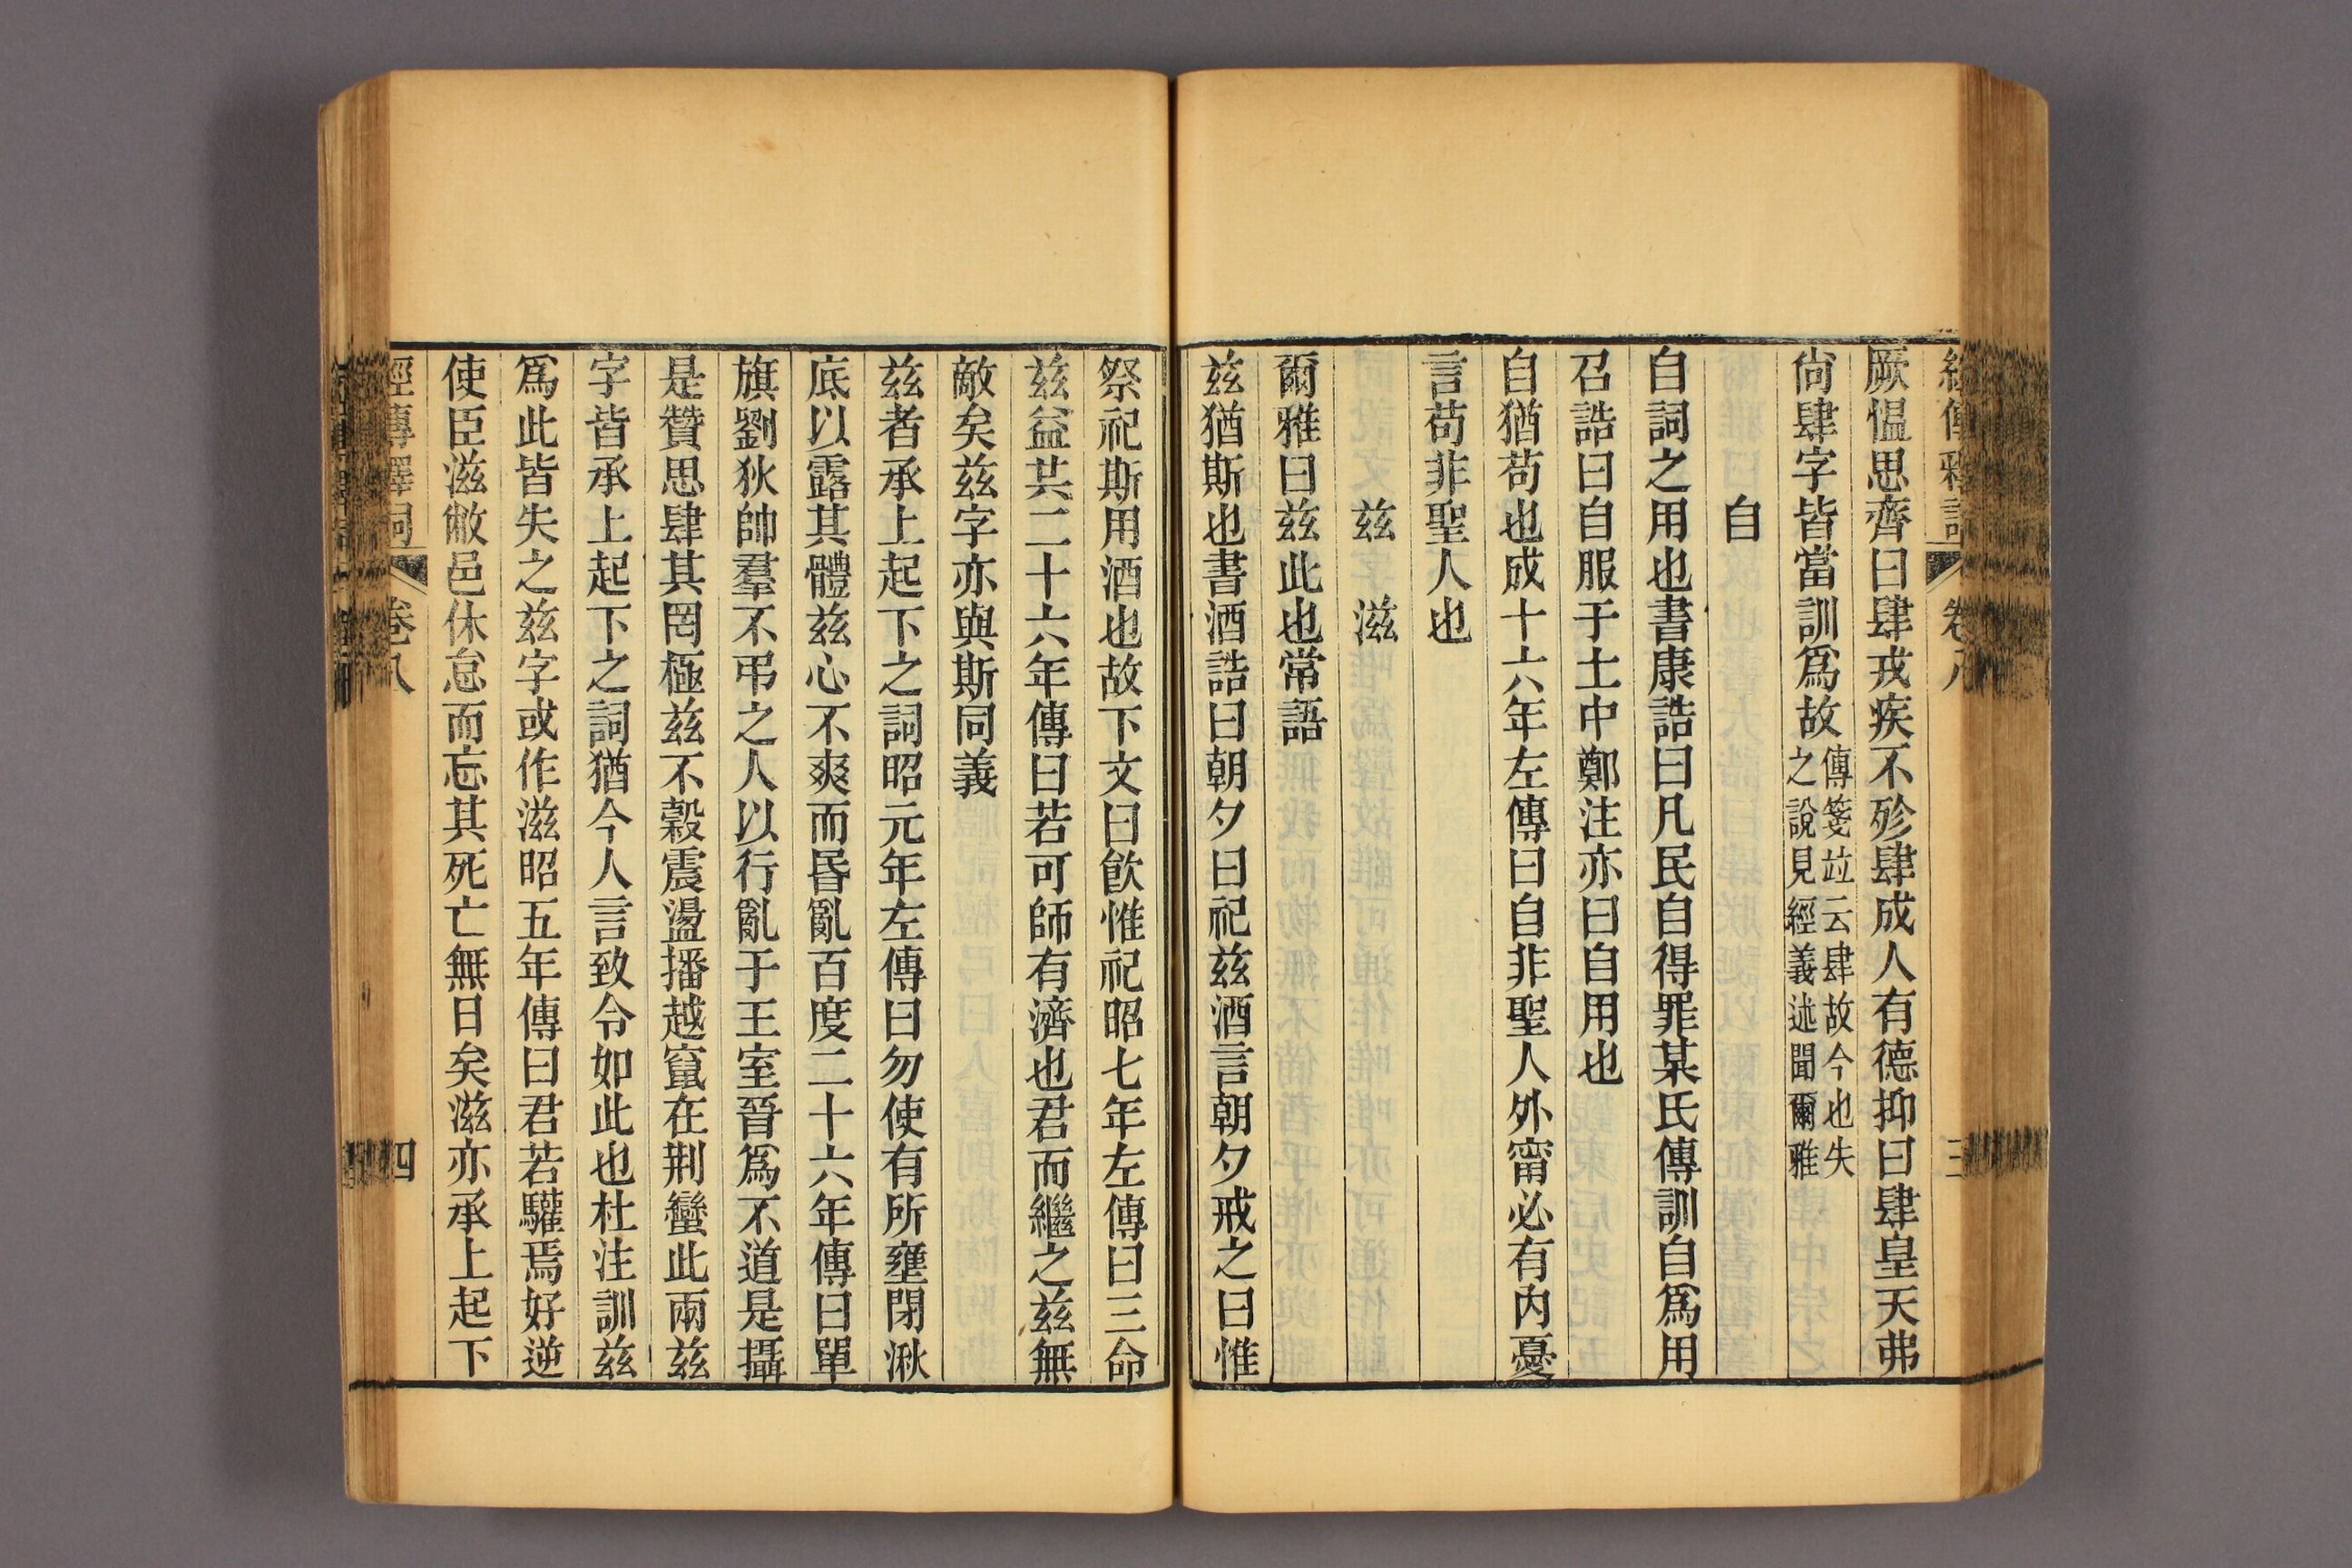 經傳釋詞 卷八 三
厥愠思齊曰肆戎疾不殄肆成人有德抑曰肆皇天弗
尙肆字皆當訓爲故傳箋竝云肆故今也失之說見經義述聞爾雅
自
自詞之用也書康誥曰凡民自得罪某氏傳訓自爲用
召誥曰自服于土中鄭注亦曰自用也
自猶苟也成十六年左傳曰自非聖人外甯必有内憂
言苟非聖人也
兹 滋
爾雅曰兹此也常語
兹猶斯也書酒誥曰朝夕曰祀兹酒言朝夕戒之曰惟
祭祀斯用酒也故下文曰飲惟祀昭七年左傳曰三命
兹益共二十六年傳曰若可師有濟也君而繼之兹無
敵矣兹字亦與斯同義
兹者承上起下之詞昭元年左傳曰勿使有所壅閉湫
底以露其體兹心不爽而昏亂百度二十六年傳曰單
旗劉狄帥羣不弔之人以行亂于王室晉爲不道是攝
是贊思肆其罔極兹不穀震盪播越竄在荆蠻此兩兹
字皆承上起下之詞猶今人言致令如此也杜注訓兹
爲此皆失之兹字或作滋昭五年傳曰君若驩焉好逆
使臣滋敝邑休怠而忘其死亡無日矣滋亦承上起下
經傳釋詞 卷八 四